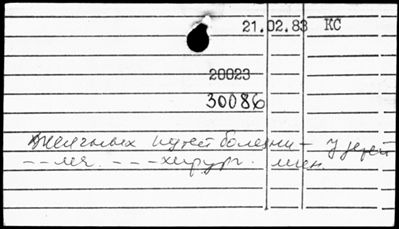 21.02.83 КС
20023
30086
Желчных путей болезни - у детей
--леч. ---хирург.